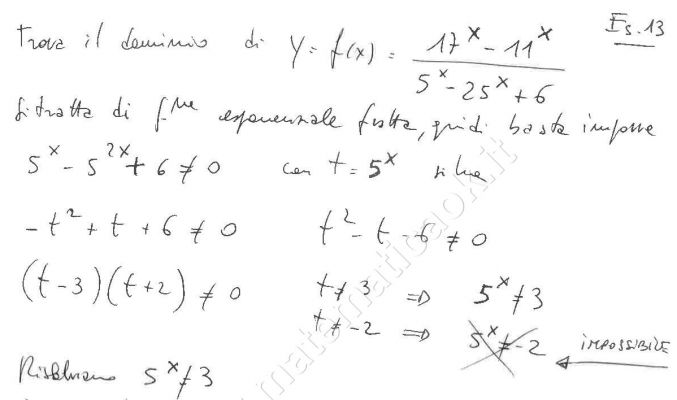 Es. 13
Trova il dominio di y = f(x) = (17^x - 11^x) / (5^x - 25^x + 6)
Si tratta di f^ne esponenziale fratta, quindi basta imporre
5^x - 5^2x + 6 ≠ 0 con t = 5^x si ha
-t² + t + 6 ≠ 0 t² - t - 6 ≠ 0
(t - 3)(t + 2) ≠ 0 t ≠ 3 => 5^x ≠ 3
t ≠ -2 => 5^x ≠ -2 IMPOSSIBILE
Risolviamo 5^x ≠ 3
matematicaok.it